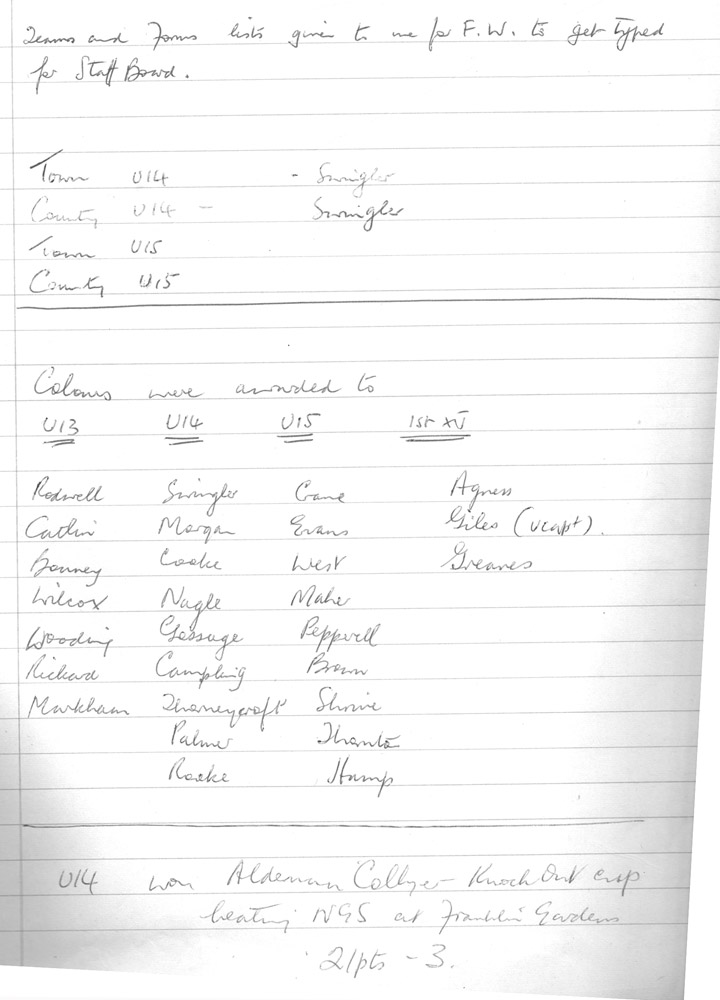 Teams and Forms lists given to me for F.W. to get typed
for Staff Board.
Town U14 - Swingler
County U14 - Swingler
Town U15
County U15
Colours were awarded to
U13 U14 U15 1st XV
Rodwell Swingler Crane Agness
Catlin Morgan Evans Giles (vcapt).
Bonney Cooke West Greaves
Wilcox Nagle Maher
Wooding Gessuge Pepperell
Rickard Campling Brown
Markham Thorneycroft Shrive
Palmer
Rooke Hump
U14 won Alderman Collyer - Knock Out cup
beating NGS at Franklin Gardens
21pts - 3.